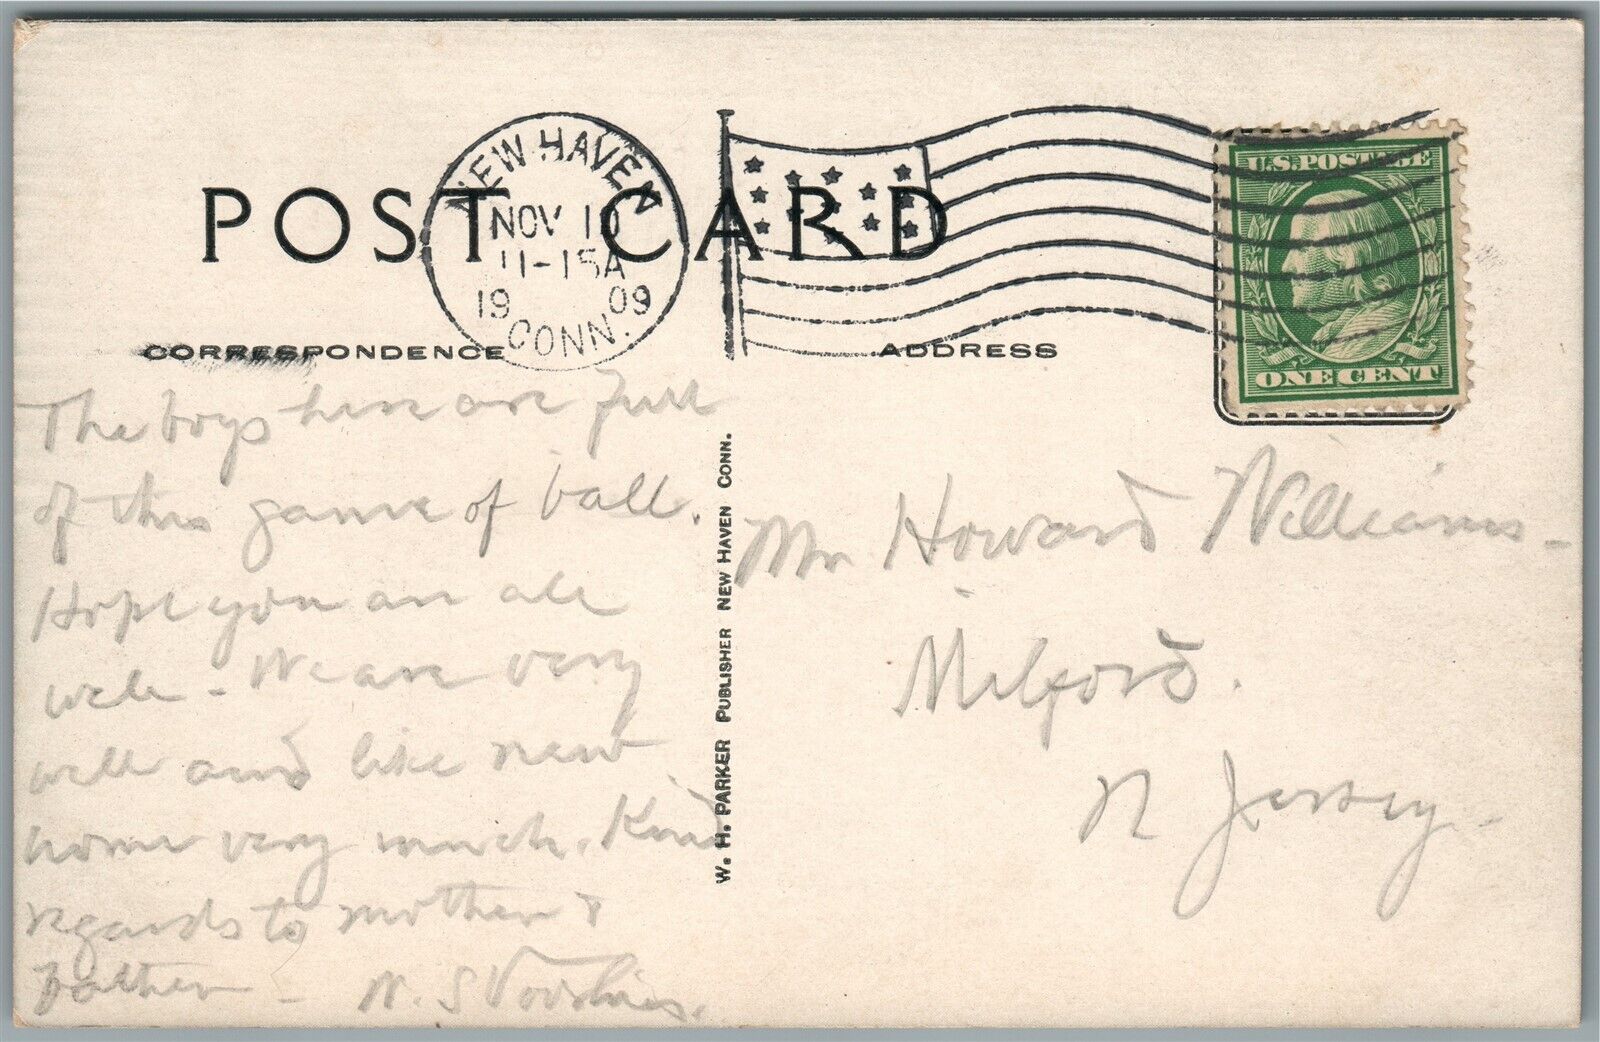 POST CARD
NEW HAVEN
NOV 10
11-15A
19 09
CONN.
U.S. POSTAGE
ONE CENT
CORRESPONDENCE
ADDRESS
The boys here are full
of this game of ball.
Hope you are all
well - We are very
well and like new
home very much. Kind
regards to mother &
Father - N. S. Voorhies.
W. H. PARKER PUBLISHER NEW HAVEN CONN.
Mr Howard Williams -
Milford.
N Jersey -